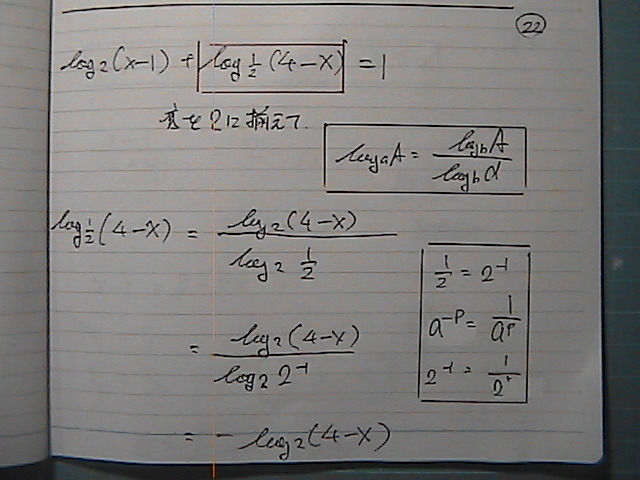 22
log₂(x-1) + log½(4-x) = 1
底を2に揃えて.
logₐA = log_bA / log_ba
log½(4-x) = log₂(4-x) / log₂ 1/2
1/2 = 2⁻¹
a⁻ᵖ = 1/aᵖ
2⁻¹ = 1/2¹
= log₂(4-x) / log₂2⁻¹
= - log₂(4-x)